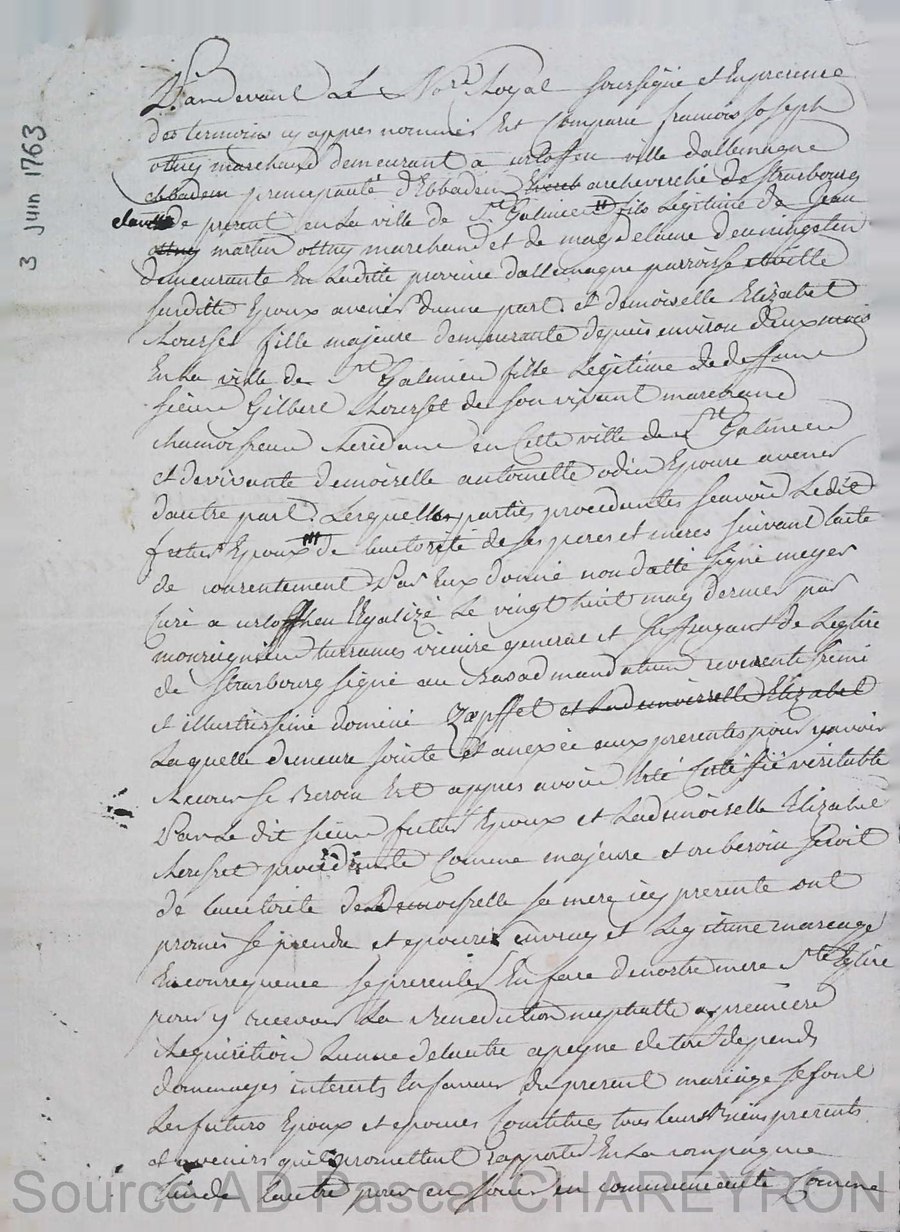 3 Juin 1763
Pardevant Le No.re Royal soussigné et En presence
des temoins cy appres nommés Est Comparu francois Joseph
ottny marchand demeurant a urloffen ville dallemagne
ebbaden principauté d'Ebbaden archeveché de strasbourg
de present en La ville de St Galmier fils Legitime de Jean
ottny martin ottny marchand et de magdelaine
demeurants En Laditte province dallemagne parroisse et ville
susditte Epoux avenir dune part et demoiselle Elizabet
fille majeure demeurante depuis environ deux mois
En La ville de St Galmier fille Legitime de deffunt
sieur Gilbert de son vivant marchand
chamoiseur residant en Cette ville de St Galmier
et de vivante demoiselle antoinette odin Epouse avenir
dautre part. Lesquelles parties procedantes scavoir Ledit
futur Epoux de lautorité de ses peres et meres suivant lacte
de consentement Par Eux donné non datté signé meyer
Curé a urloffheu Legalizé Le vingt huit may dernier par
monseigneur vicaire general et suffragant de Leglise
de strasbourg signé au Bas ad mandatum reverentissimi
et illustrissimi domini Zæpffel et Lademoisselle Elizabet
Laquelle demeure jointe et anexée aux presentes pour y avoir
Recours se Besoin Est appres avoir Esté Certiffié veritable
Par Le dit sieur futur Epoux et Lademoiselle Elizabet
procedante Comme majeure et ou besoin seroit
de lautorité de Demoiselle sa mere icy presente ont
promis se prendre et epouser en vray et Legitime mariage
En consequence se presenter En face de nostre mere Ste Eglise
pour y recevoir La Benediction nuptialle a premiere
Requisition Lun de lautre a peyne de tous depends
dommages interets En faveur du present mariage se sont
Les futurs Epoux et epouse Constitués tous leurs Biens presents
et avenirs quils promettent rapporter En La compagnie
lun de lautre pour en jouir en communeauté Comme
Source AD Pascal CHAREYRON